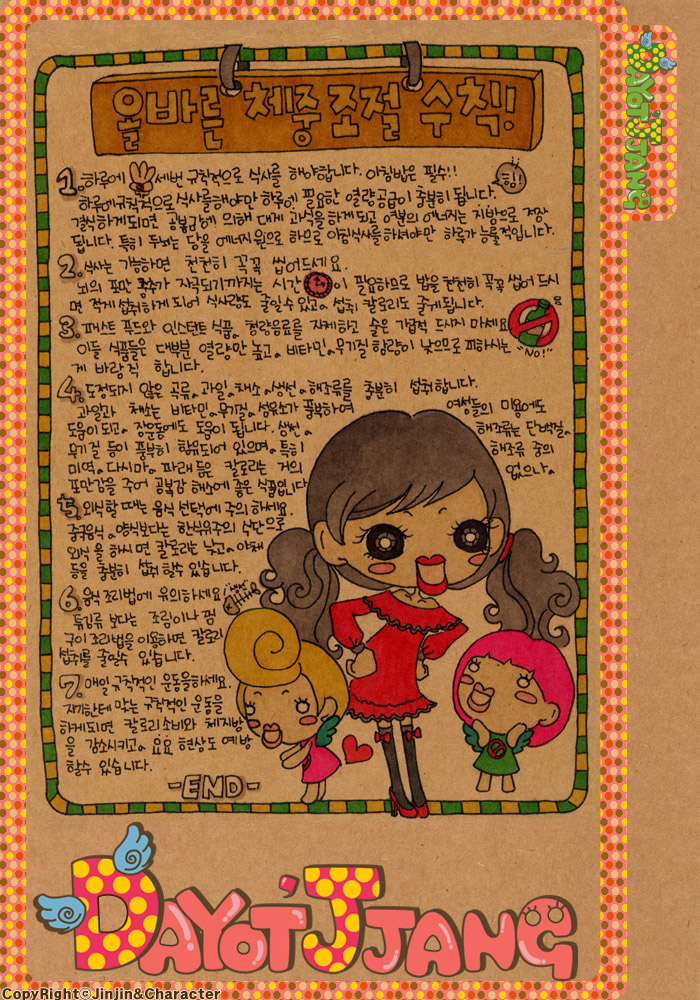 올바른 체중 조절 수칙!
1. 하루에 세번 규칙적으로 식사를 해야합니다. 아침밥은 필수!!
하루에 규칙적으로 식사를해야만 하루에 필요한 열량공급이 충분히 됩니다.
결식하게되면 공복감에 의해 대게 과식을 하게 되고 여분의 에너지는 지방으로 저장
됩니다. 특히 두뇌는 당을 에너지원으로 하므로 아침식사를 하셔야만 하루가 능률적입니다.
2. 식사는 가능하면 천천히 꼭꼭 씹어드세요.
뇌의 포만 중추가 자극되기까지는 시간이 필요하므로 밥을 천천히 꼭꼭 씹어 드시
면 적게 섭취하게 되어 식사량도 줄일수 있고, 섭취 칼로리도 줄게됩니다.
3. 패스트 푸드와 인스턴트 식품, 청량음료를 자제하고 술은 가급적 드시지 마세요
이들 식품들은 대부분 열량만 높고, 비타민, 무기질 함량이 낮으므로 피하시는 "NO!"
게 바람직 합니다.
4. 도정되지 않은 곡류, 과일, 채소, 생선, 해조류를 충분히 섭취합니다.
과일과 채소는 비타민, 무기질, 섬유소가 풍부하여 여성들의 미용에도
도움이되고, 장운동에도 도움이 됩니다. 생선, 해조류는 단백질,
무기질 등이 풍부히 함유되어 있으며, 특히 해조류 중의
미역, 다시마, 파래 등은 칼로리는 거의 없으나,
포만감을 주어 공복감 해소에 좋은 식품입니다
5. 외식할 때는 음식 선택에 주의 하세요.
중국음식, 양식보다는 한식위주의 식단으로
외식 을 하시 면 칼로리는 낮고, 야채
등을 충분히 섭취 할수 있습니다.
6. 음식 조리법에 유의하세요
튀김류 보다는 조림이나 찜
구이 조리법을 이용하면 칼로리
섭취를 줄일수 있습니다.
7. 매일 규칙적인 운동을하세요.
자기한테 맞는 규칙적인 운동을
하게되면 칼로리소비와 체지방
을 감소시키고, 요요 현상도 예방
할수 있습니다.
-END-
DAYOT'JJANG
DAYOT'JJANG
CopyRight©Jinjin&Character